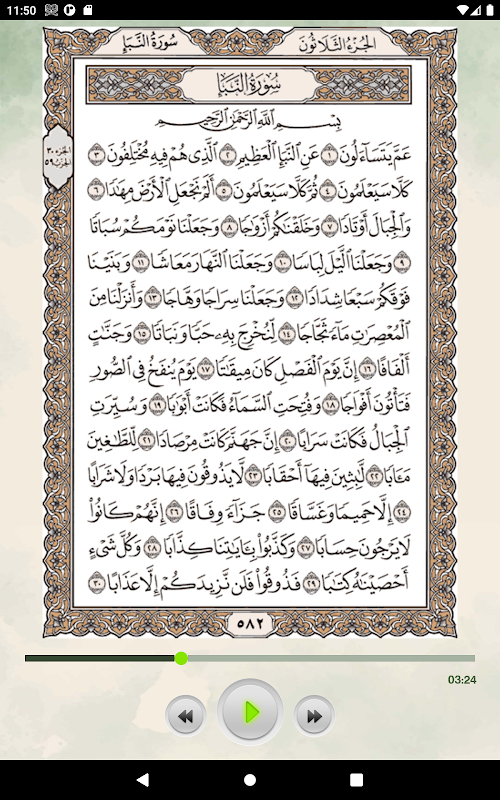 11:50
سُورَةُ النَّبَإِ
الجُزْءُ الثَّلَاثُونَ
سُورَةُ النَّبَإِ
بِسْمِ اللَّهِ الرَّحْمَٰنِ الرَّحِيمِ
عَمَّ يَتَسَآءَلُونَ ١ عَنِ النَّبَإِ الْعَظِيمِ ٢ الَّذِي هُمْ فِيهِ مُخْتَلِفُونَ ٣
كَلَّا سَيَعْلَمُونَ ٤ ثُمَّ كَلَّا سَيَعْلَمُونَ ٥ أَلَمْ نَجْعَلِ الْأَرْضَ مِهَٰدًا ٦
وَالْجِبَالَ أَوْتَادًا ٧ وَخَلَقْنَٰكُمْ أَزْوَٰجًا ٨ وَجَعَلْنَا نَوْمَكُمْ سُبَاتًا
٩ وَجَعَلْنَا الَّيْلَ لِبَاسًا ١٠ وَجَعَلْنَا النَّهَارَ مَعَاشًا ١١ وَبَنَيْنَا
فَوْقَكُمْ سَبْعًا شِدَادًا ١٢ وَجَعَلْنَا سِرَاجًا وَهَّاجًا ١٣ وَأَنزَلْنَا مِنَ
الْمُعْصِرَٰتِ مَآءً ثَجَّاجًا ١٤ لِّنُخْرِجَ بِهِۦ حَبًّا وَنَبَاتًا ١٥ وَجَنَّٰتٍ
أَلْفَافًا ١٦ إِنَّ يَوْمَ الْفَصْلِ كَانَ مِيقَٰتًا ١٧ يَوْمَ يُنفَخُ فِي الصُّورِ
فَتَأْتُونَ أَفْوَاجًا ١٨ وَفُتِحَتِ السَّمَآءُ فَكَانَتْ أَبْوَٰبًا ١٩ وَسُيِّرَتِ
الْجِبَالُ فَكَانَتْ سَرَابًا ٢٠ إِنَّ جَهَنَّمَ كَانَتْ مِرْصَادًا ٢١ لِّلطَّٰغِينَ
مَـَٔابًا ٢٢ لَّٰبِثِينَ فِيهَآ أَحْقَابًا ٢٣ لَّا يَذُوقُونَ فِيهَا بَرْدًا وَلَا شَرَابًا
٢٤ إِلَّا حَمِيمًا وَغَسَّاقًا ٢٥ جَزَآءً وِفَاقًا ٢٦ إِنَّهُمْ كَانُوا۟
لَا يَرْجُونَ حِسَابًا ٢٧ وَكَذَّبُوا۟ بِـَٔايَٰتِنَا كِذَّابًا ٢٨ وَكُلَّ شَيْءٍ
أَحْصَيْنَٰهُ كِتَٰبًا ٢٩ فَذُوقُوا۟ فَلَن نَّزِيدَكُمْ إِلَّا عَذَابًا ٣٠
الجزء ٣٠
الحزب ٥٩
٥٨٢
03:24